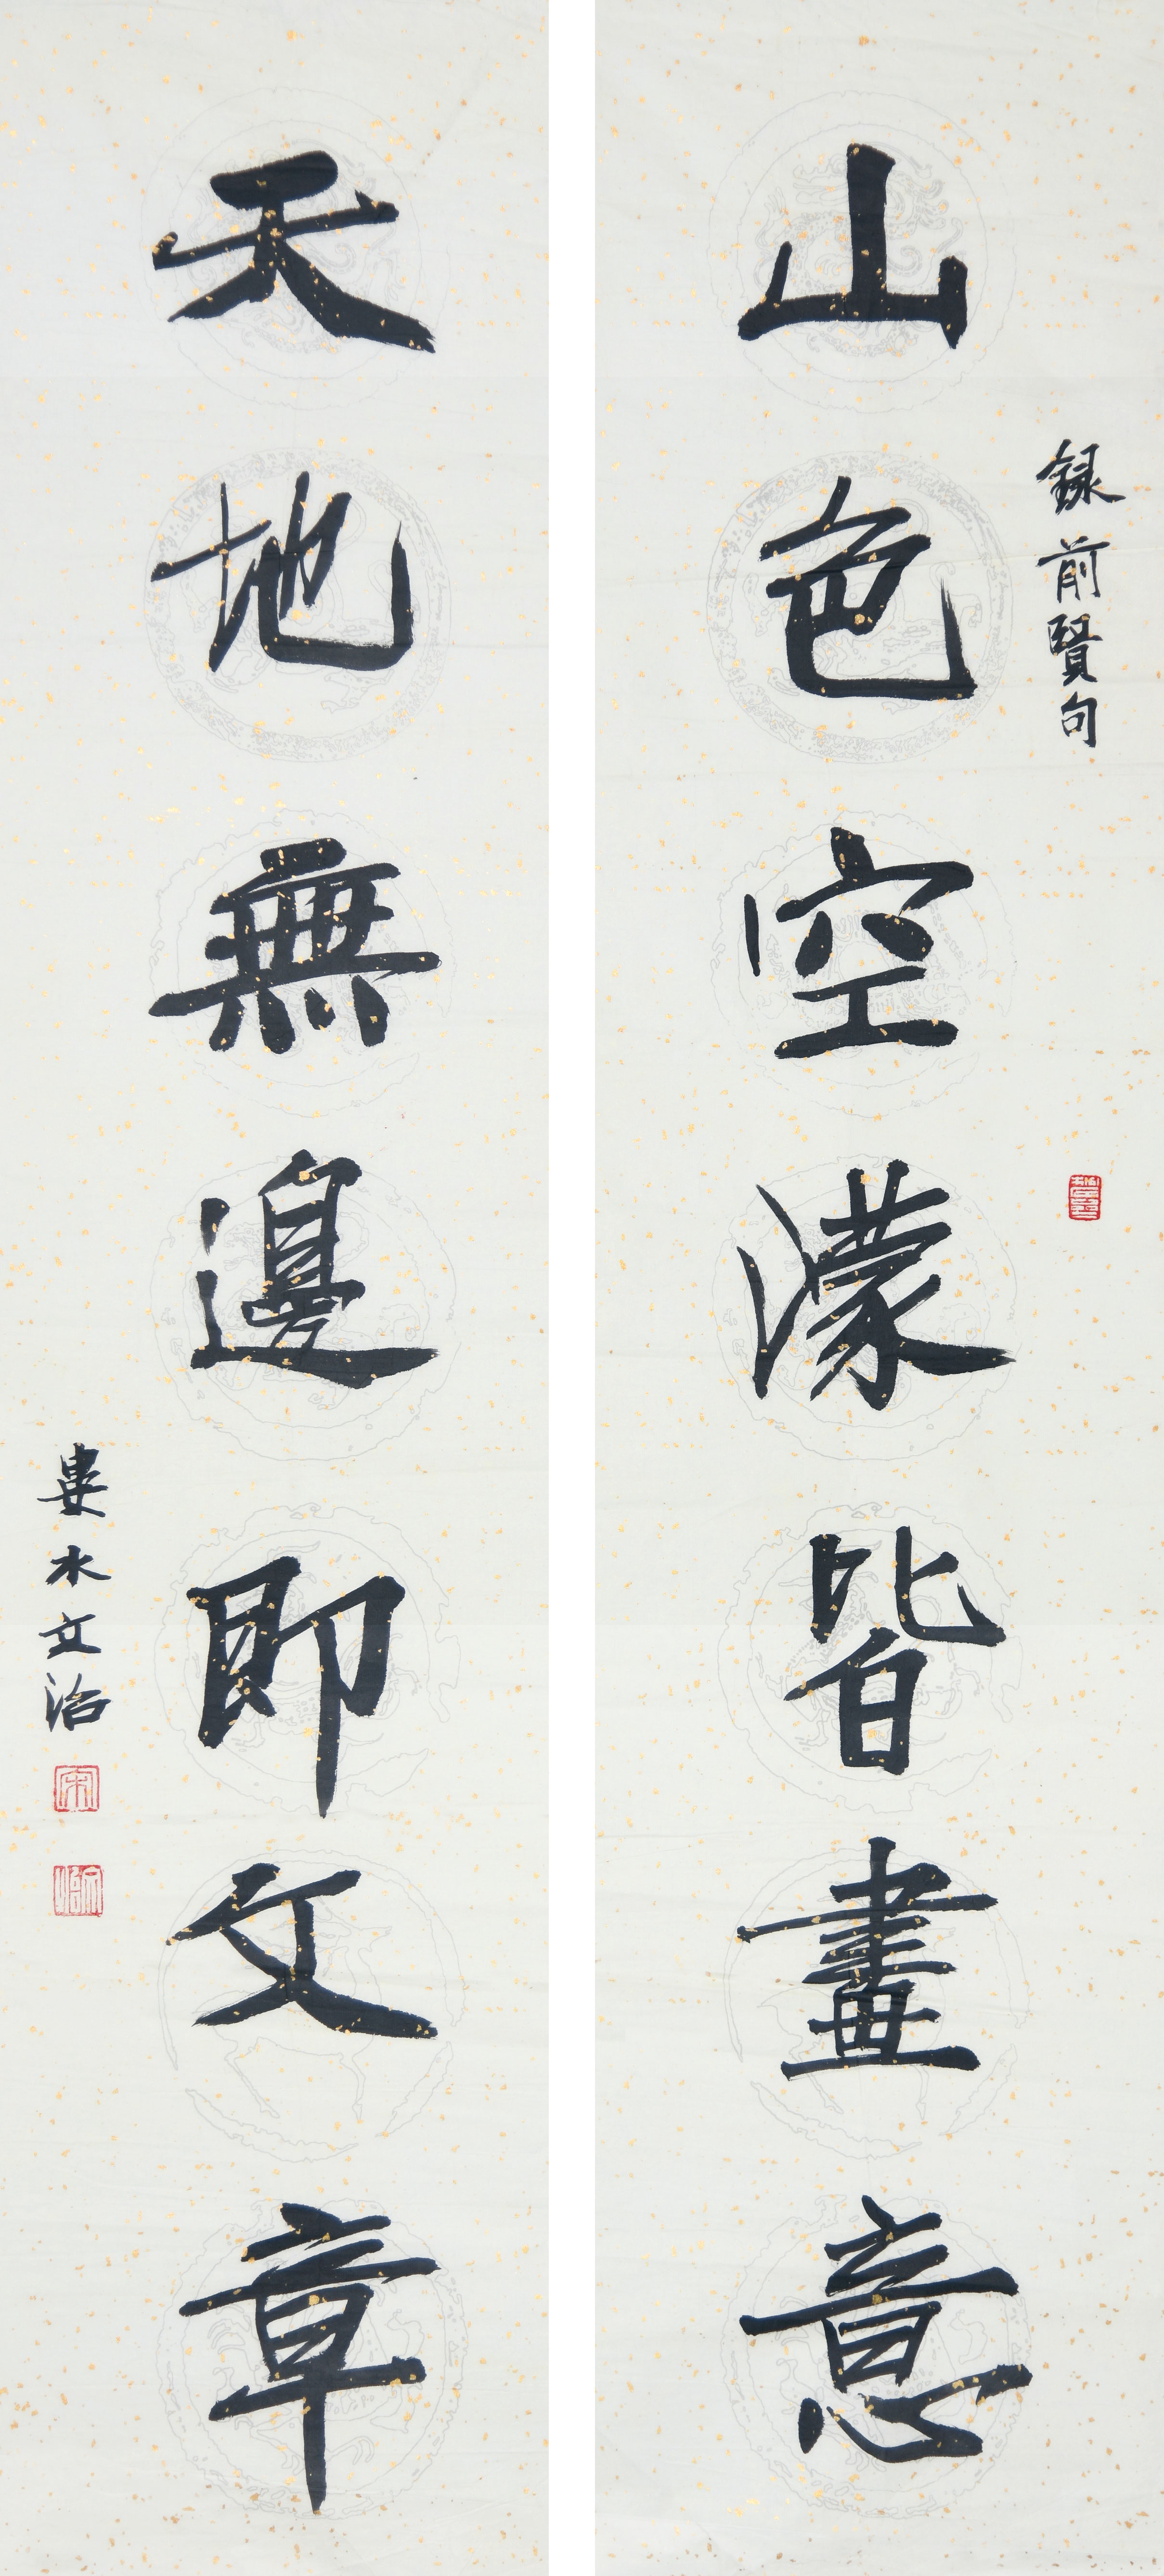 録前賢句
山色空濛皆畫意
天地無邊即文章
婁水文治